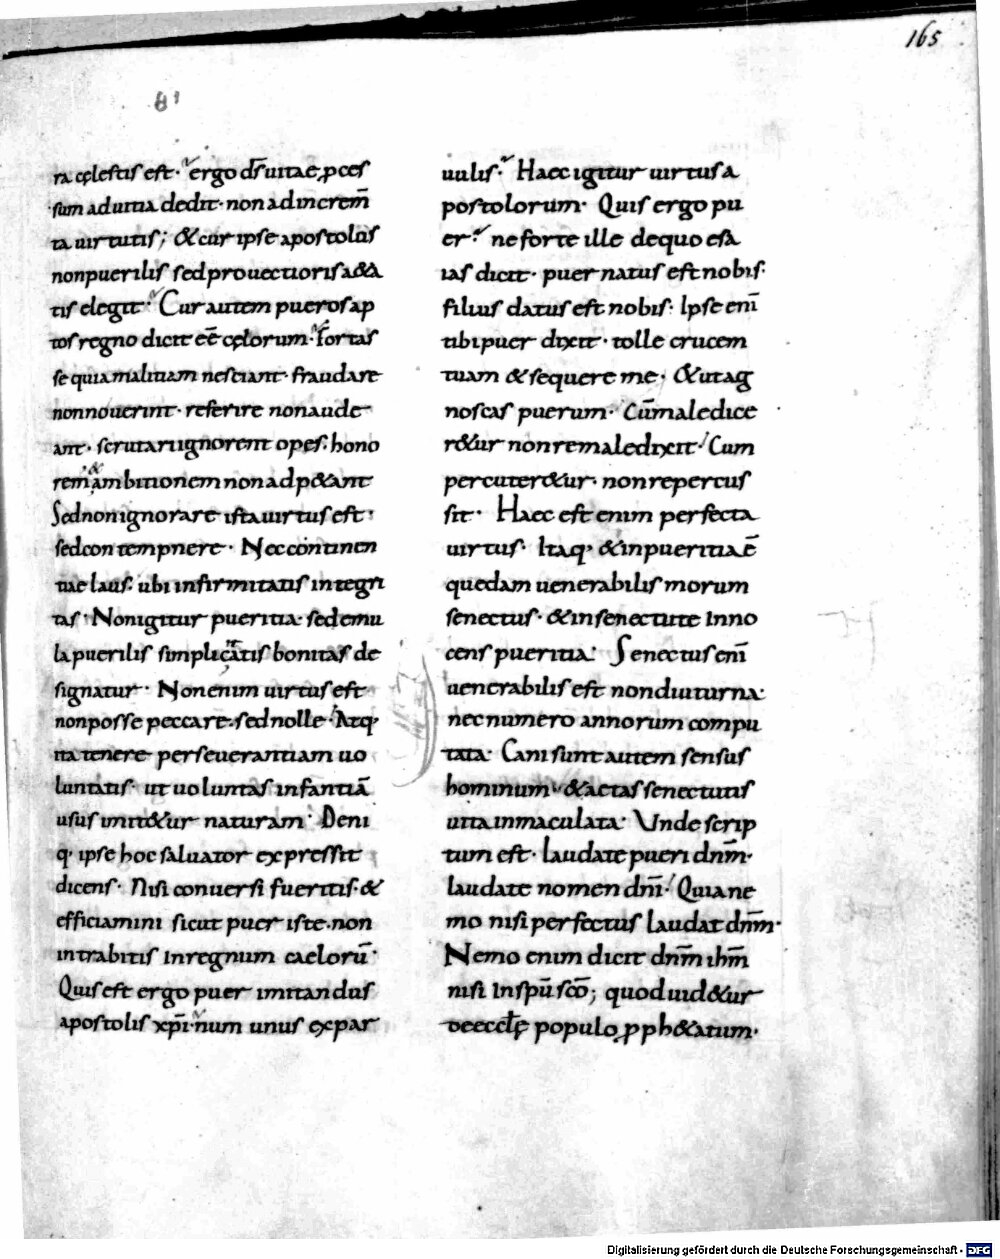 165
81
ra cęlestis est· ergo d̄s uitae, p̱ces
sum ad uitia dedit· non ad increm̄
ta uirtutis; & cur ipse apostolus
non puerilis sed prouectioris a&a
tis elegit· Cur autem pueros ap
tos regno dicit eē cęlorum· Fortas
se quia malitiam nesciant· fraudare
non nouerint· referire non aude
ant· scrutari ignorent opes· hono
rem & ambitionem non adp&ant
Sed non ignorare ista uirtus est·
sed contempnere· Nec continen
tiae laus· ubi infirmitatis integri
tas· Non igitur pueritia· sed emu
la puerilis simplicitatis bonitas de
signatur· Non enim uirtus est
non posse peccare· sed nolle· Atq·
ita tenere perseuerantiam uo
luntatis· ut uoluntas infantiā
usus imit&ur naturam· Deni
q· ipse hoc saluator expressit
dicens· Nisi conuersi fueritis· &
efficiamini sicut puer iste· non
intrabitis in regnum caelorū·
Quis est ergo puer imitandus
apostolis xp̄i· num unus ex par
uulis· Haec igitur uirtus a
postolorum· Quis ergo pu
er· ne forte ille de quo esa
ias dicit· puer natus est nobis·
filius datus est nobis· Ipse enī
tibi puer dixit· tolle crucem
tuam & sequere me· & ut ag
noscas puerum· Cū maledice
r&ur non remaledixit· Cum
percuter&ur· non repercus
sit· Haec est enim perfecta
uirtus· Itaq· & in pueritia ē
quedam uenerabilis morum
senectus· & in senectute inno
cens pueritia· Senectus enī
uenerabilis est non diuturna·
nec numero annorum compu
tata· Cani sunt autem sensus
hominum· & aetas senectutis
uita inmaculata· Unde scrip
tum est· laudate pueri dnm̄·
laudate nomen dnī· Quia ne
mo nisi perfectus laudat dnm̄·
Nemo enim dicit dnm̄ ihm̄
nisi in spū scō; quod uid&ur
de eccl̄ę populo p̱ph&atum·
Digitalisierung gefördert durch die Deutsche Forschungsgemeinschaft - DFG